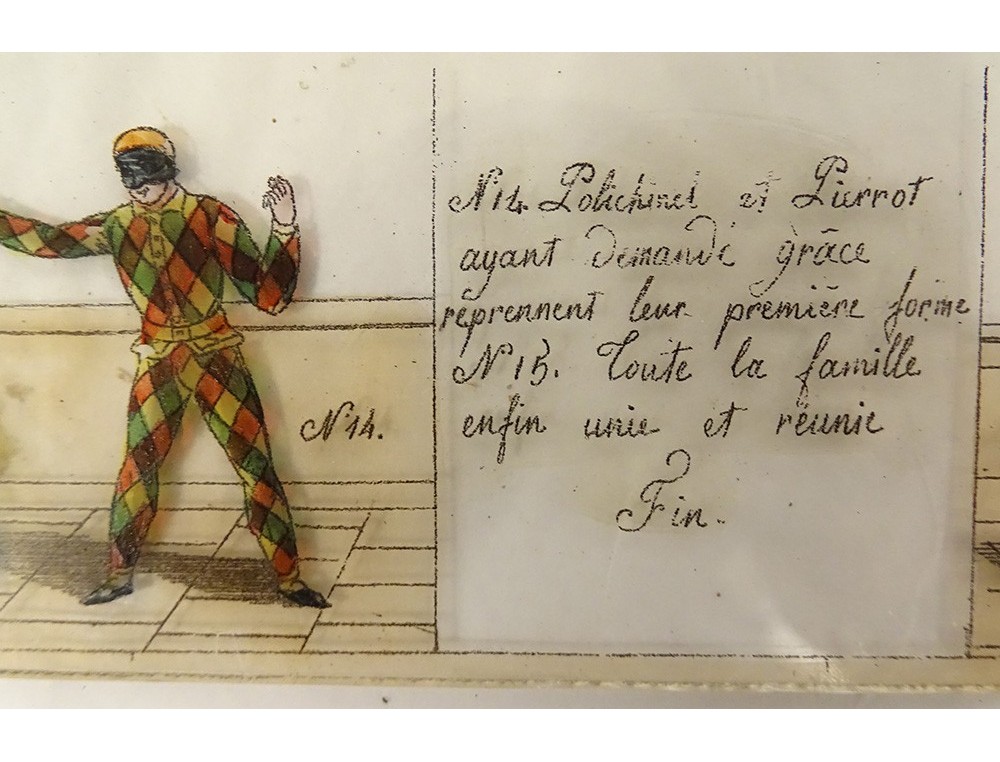 N 14.
N 14. Polichinel et Pierrot
ayant demandé grâce
reprennent leur première forme
N 15. Toute la famille
enfin unie et réunie
Fin.